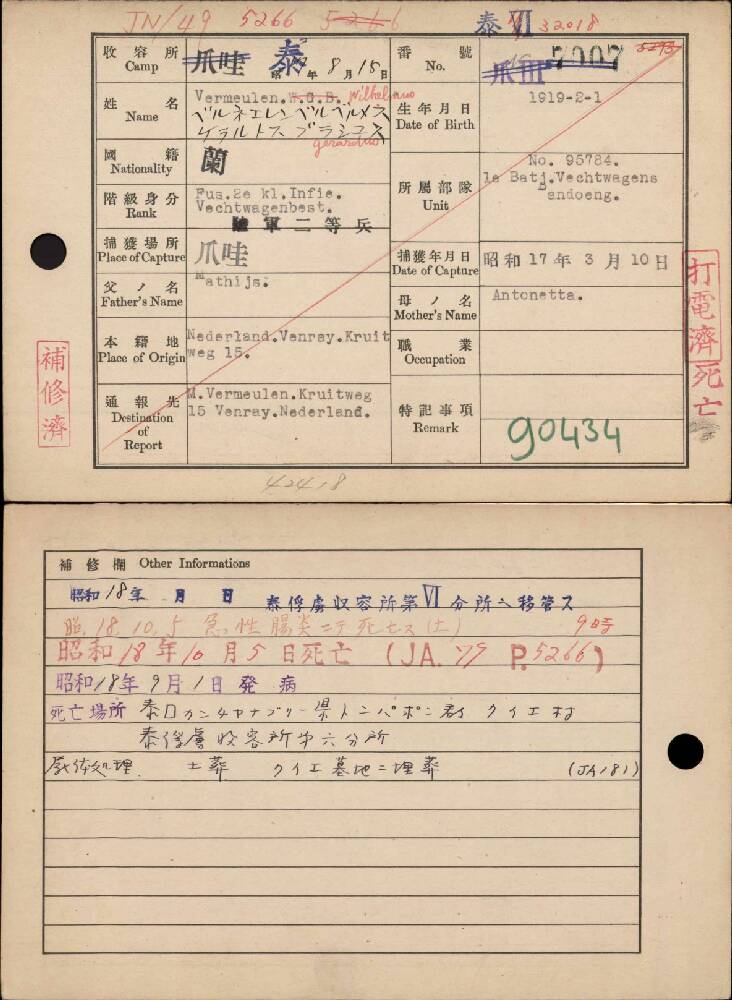 JN/49 5266 5266 泰VI 32018
收容所 Camp 爪哇 泰 昭 年8月15日 番號 No. 爪III 7007 5293
姓名 Name Vermeulen.W.G.B. Wilhelmus
ベルメエレン ベルヘルメス
ゲラルトス
gerardus
生年月日 Date of Birth 1919-2-1
國籍 Nationality 蘭
階級身分 Rank Fus.2e kl.Infie.
Vechtwagenbest.
陸軍二等兵
所屬部隊 Unit No. 95784.
1e Batj.Vechtwagens
Bandoeng.
捕獲場所 Place of Capture 爪哇 捕獲年月日 Date of Capture 昭和17年3月10日
父ノ名 Father's Name Mathijs. 母ノ名 Mother's Name Antonetta.
本籍地 Place of Origin Nederland.Venray.Kruit
weg 15.
職業 Occupation
通報先 Destination of Report M.Vermeulen.Kruitweg
15 Venray.Nederland.
特記事項 Remark 90434
補修濟
打電濟 死亡
42418
補修欄 Other Informations
昭和18年 月 日 泰俘虜収容所第VI分所ヘ移管ス
昭.18.10.5 急性腸炎ニテ死亡ス(土) 9時
昭和18年10月5日死亡 (JA.79 P.5266)
昭和18年9月1日発病
死亡場所 泰国カンチヤナブリー県トンパポン郡 クイエ村
泰俘虜收容所第六分所
屍体処理. 土葬 クイエ墓地ニ埋葬 (JA181)